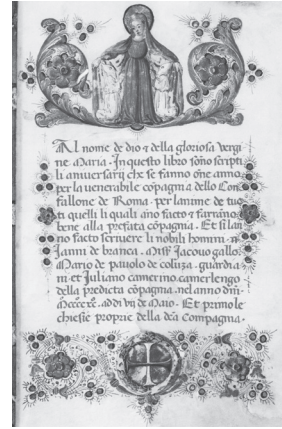 Al nome de dio ⁊ della gloriosa vergi
ne. Maria. In questo libro sono scripti
li aniuersarij che se fanno oñe anno.
per la uenerabile cõpagnia dello Con
fallone de Roma. per lanime de tuo
ti quelli li quali ano facto ⁊ farrano
bene alla prefata cõpagnia. Et si lan
no facto scriuere li nobili homini.
Janni de branca. Miss Jacouo gallo.
Mario de pauolo de coluza. guardia
ni et Juliano camerino. camerlengo
della predicta cõpagnia. nel anno dñi
Mcccclxx. a di vij de Maio. Et primo le
chiesie proprie della dẽa Compagnia.